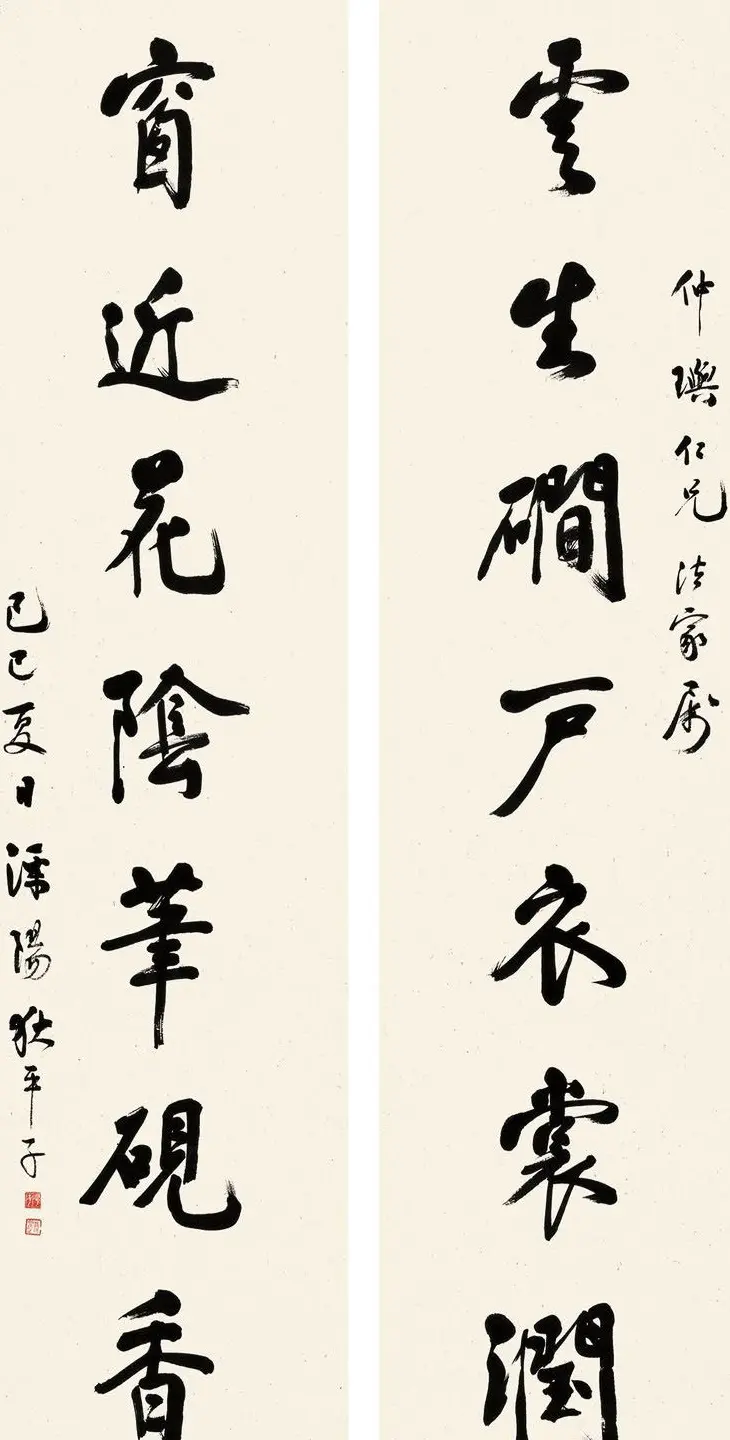 仲璵仁兄法家属
雲生磵户衣裳潤
窗近花陰筆硯香
己巳夏日溧陽狄平子